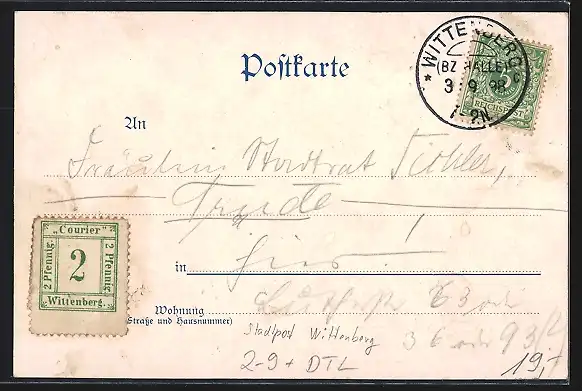 WITTENBERG
(BZ HALLE)
3 9 98
7-8N.
5
REICHSPOST
Postkarte
An
Fräulein Stadtrat
Trude
hier!
in
"Courier"
2 Pfennig.
2
2 Pfennig.
Wittenberg.
Wohnung
(Straße und Hausnummer)
63
Stadtpost Wittenberg
2-9 + DTL
36 oder 93/4
19,-